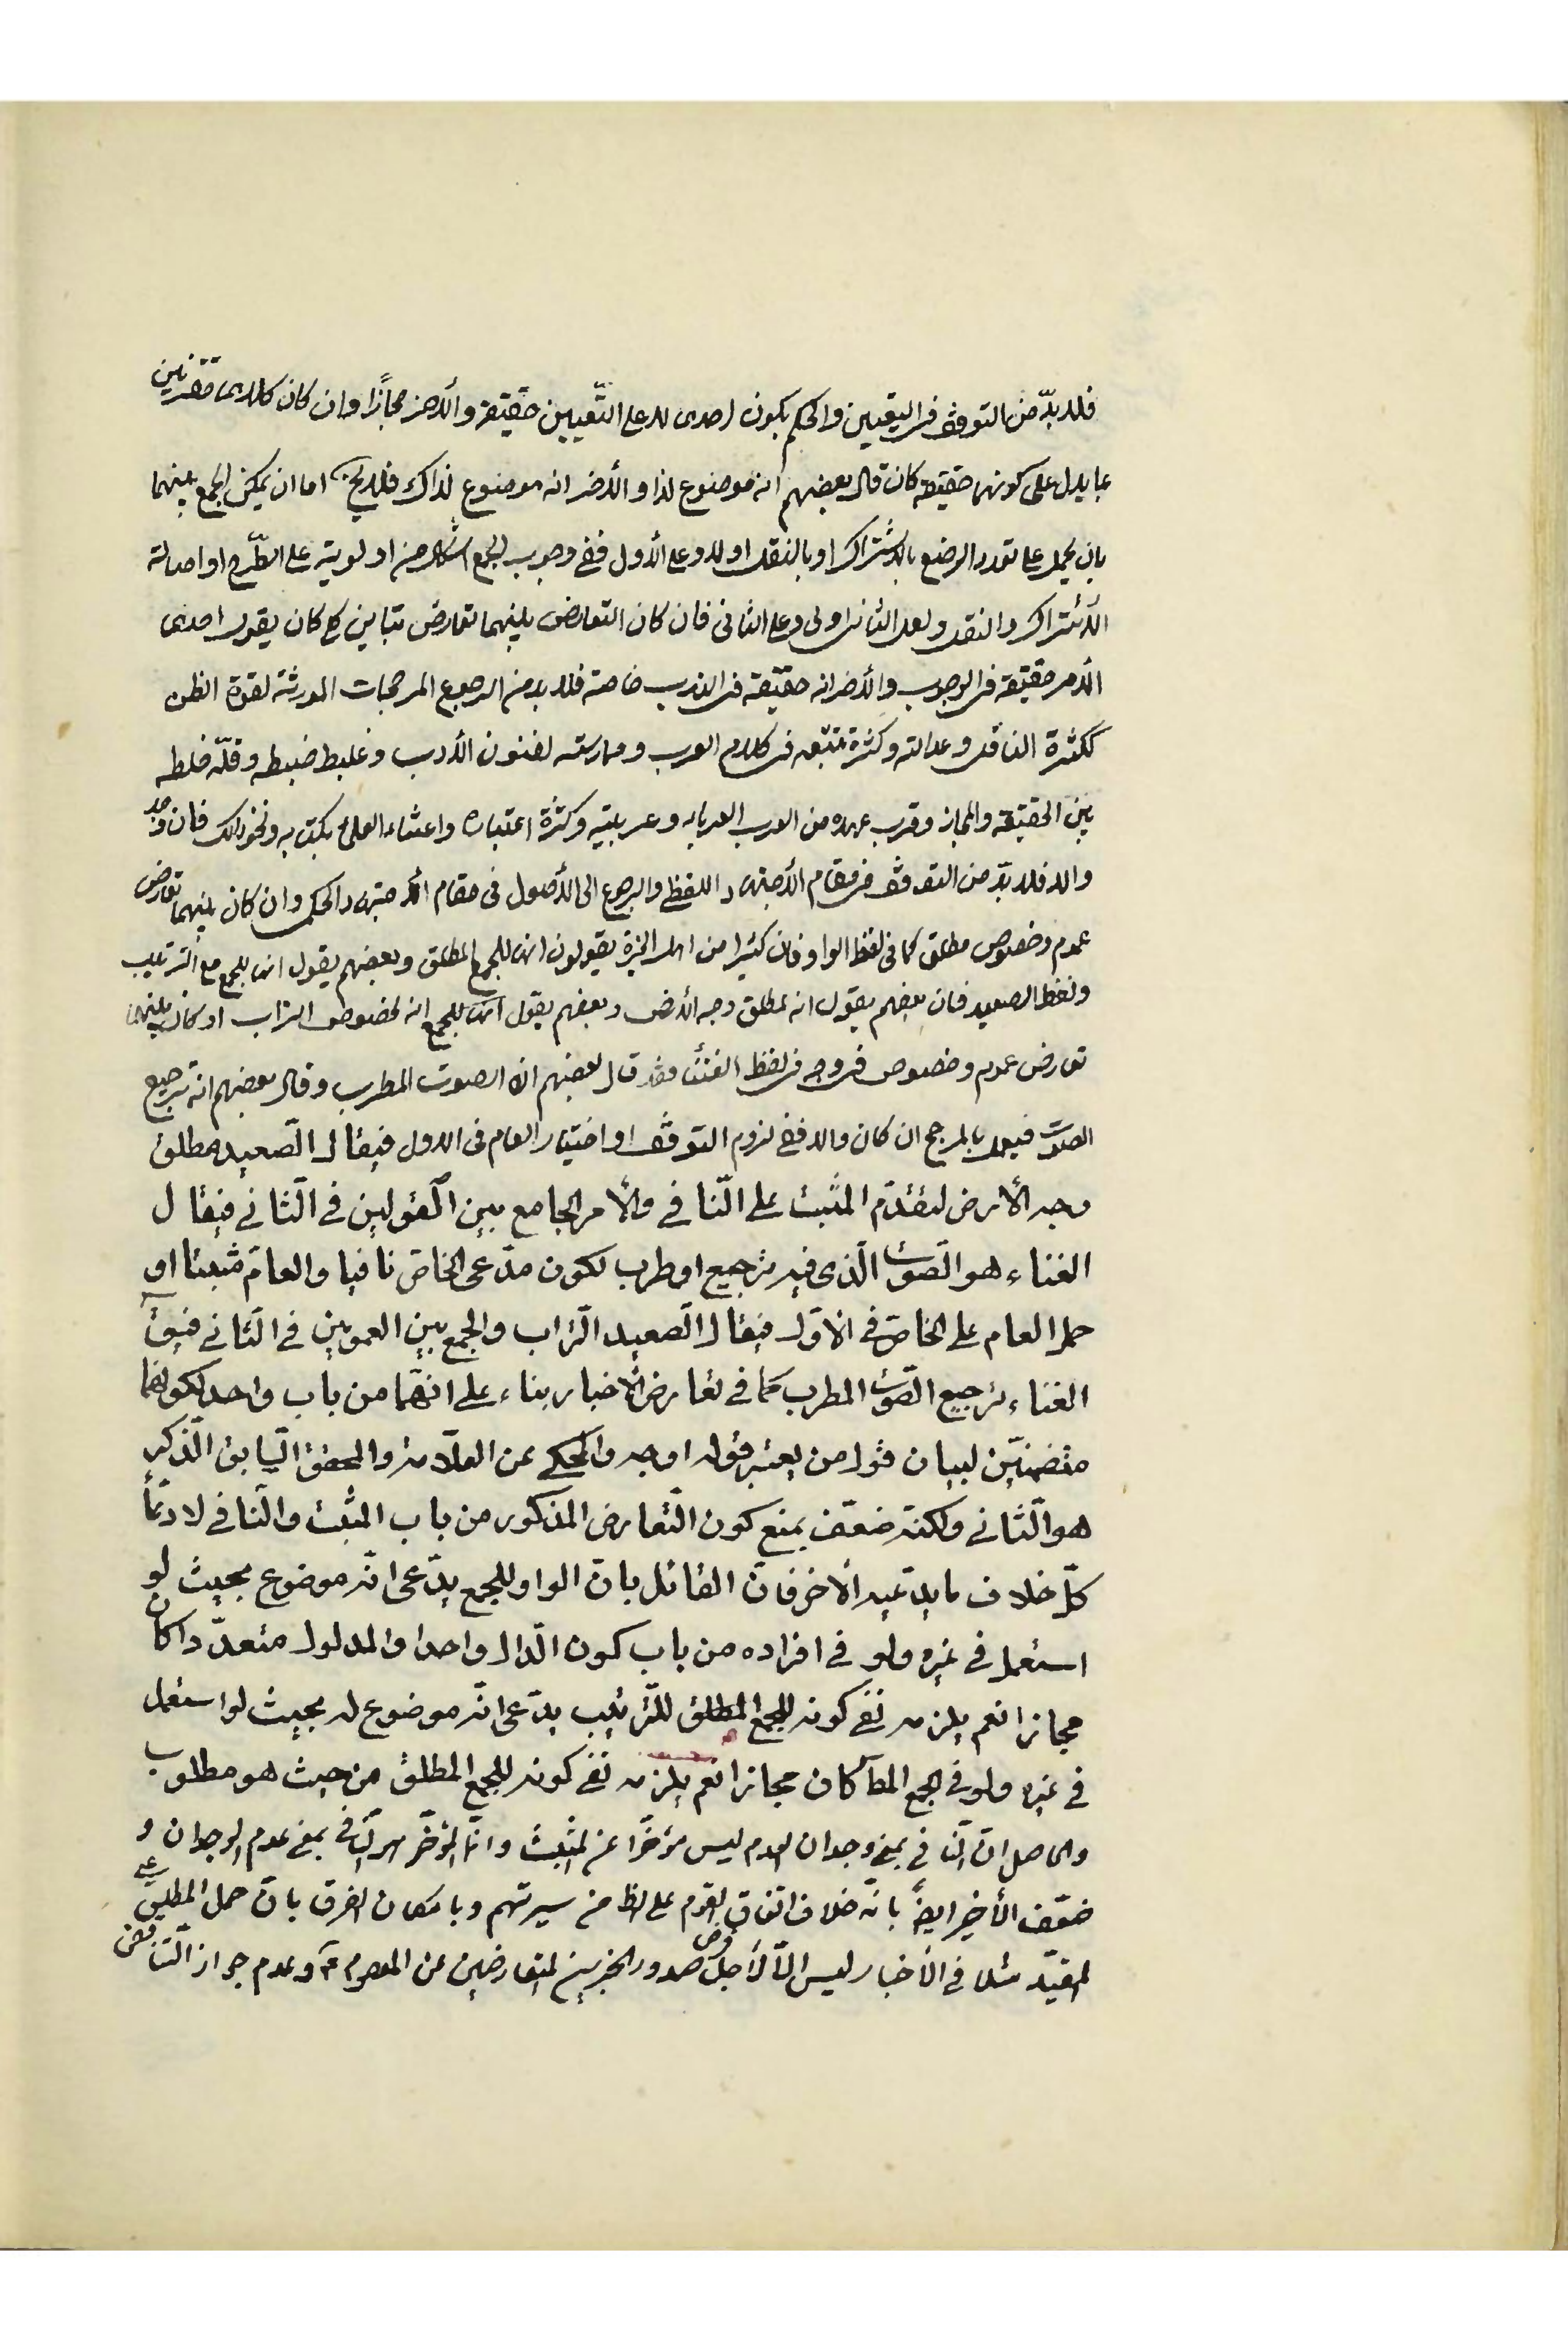 فلا بدّ من التوقف في التعيين والحكم بكون احدى لا على التّعيين حقيقة والأخر مجازًا وان كان كلاهما مقترنين
بما يدل على كونهما حقيقة كان قال بعضهم انه موضوع لذا والأخر انه موضوع لذاك فلا يخ اما ان يمكن الجمع بينهما
بان يحمل على تعدد الوضع بالاشتراك او بالنقل او لا وعلى الأول ففي وجوب الجمع اشكال من اولويته على الطّرح او اصالة
الأشتراك والنقل ولعل الثاني اولى وعلى الثاني فان كان التعارض بينهما تعارض تباين كان يقول احدى
الأمر حقيقة في الوجوب والأخر انه حقيقة في الندب خاصة فلا بد من الرجوع المرجحات المورثة لقوة الظن
ككثرة الناقل وعدالته وكثرة تتبعه في كلام العرب وممارسته لفنون الأدب و ضبطه وقلّة خلطه
بين الحقيقة والمجاز وقرب عهده من العرب العرباء وعربيته وكثرة اعتباره واعتناء العلماء بكتابه ونحو ذلك فان وجد
والا فلا بدّ من التوقف في مقام الأجتهاد اللفظي والرجوع الى الأصول في مقام الاجتهاد الحكمي وان كان بينهما تعارض
عموم وخصوص مطلق كما في لفظ الواو فان كثيرا من اهل الخبرة يقولون انها للجمع المطلق وبعضهم يقول انها للجمع مع الترتيب
ولفظ الصعيد فان بعضهم يقول انه لمطلق وجه الأرض وبعضهم يقول انها للجمع انه لخصوص التراب او كان بينهما
تعارض عموم وخصوص في وجه في لفظ الغناء فقد قال بعضهم انه الصوت المطرب وقال بعضهم انه ترجيع
الصوت فيعمل بالمرجح ان كان والا ففي لزوم التوقف او اختيار العام في الاول فيقال الصّعيد مطلق
وجه الأرض لتقدّم المثبت على النّافي والأمر الجامع بين القولين في الثّاني فيقال
الغناء هو الصّوت الّذي فيه ترجيع او طرب لكون مدّعى الخاصّ نافيا والعامّ مثبتا او
حمل العام على الخاصّ في الاوّل فيقال الصّعيد التّراب والجمع بين العمومين في الثّاني فيق
الغناء ترجيع الصّوت المطرب كما في تعارض الأخبار بناء على انهما من باب واحد لكونهما
متضمّنين لبيان قول من يعتبر قوله اوجه والمحكي عن العلّامة والمحقق السّابق الذّكر
هو الثّاني ولكنّه ضعّف بمنع كون التّعارض المذكور من باب المثبت والنّافي لادّعاء
كلّ خلاف ما يدّعيه الأخر فانّ القائل بانّ الواو للجمع يدّعى انّه موضوع بحيث لو
استعمل في غيره ولو في افراده من باب كون الدّال واحدا والمدلول متعدّدا كان
مجازا نعم يلزمه نفي كونه للجمع المطلق للتّرتيب يدّعى انّه موضوع له بحيث لو استعمل
في غيره ولو في الجمع المط كان مجازا نعم يلزمه نفي كونه للجمع المطلق من حيث هو مطلوب
والحاصل انّ النّافي بمعنى وجدان العدم ليس مؤخّرا عن المثبت وانّما المؤخّر هو النّافي بمعنى عدم الوجدان و
ضعّف الأخير ايضًا بانّه خلاف اتفاق القوم على الظ من سيرتهم وبامكان الفرق بانّ حمل المطلق على
المقيّد مثلا في الأخبار ليس الّا لأجل فرض صدور الخبرين المتعارضين من المعصوم ع وعدم جواز التّناقض